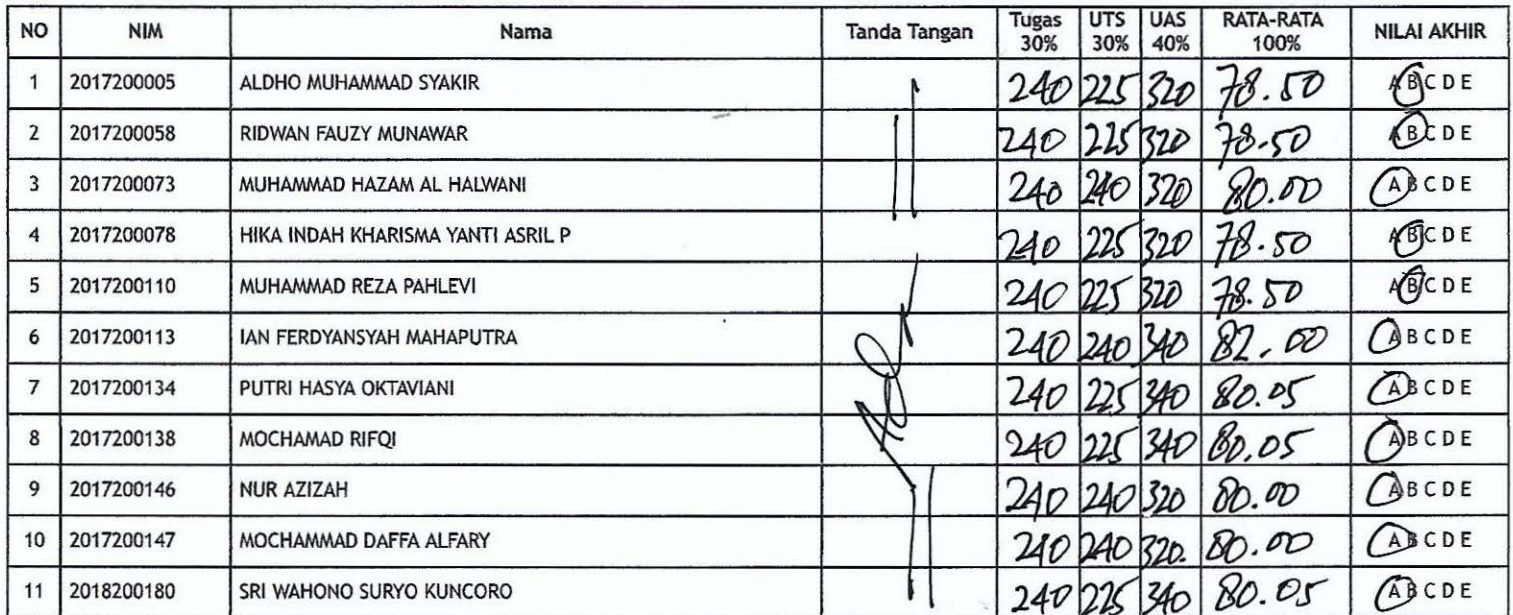 NO NIM Nama Tanda Tangan Tugas 30% UTS 30% UAS 40% RATA-RATA 100% NILAI AKHIR
1 2017200005 ALDHO MUHAMMAD SYAKIR 240 225 320 78.50 A B C D E
2 2017200058 RIDWAN FAUZY MUNAWAR 240 225 320 78.50 A B C D E
3 2017200073 MUHAMMAD HAZAM AL HALWANI 240 240 320 80.00 A B C D E
4 2017200078 HIKA INDAH KHARISMA YANTI ASRIL P 240 225 320 78.50 A B C D E
5 2017200110 MUHAMMAD REZA PAHLEVI 240 225 320 78.50 A B C D E
6 2017200113 IAN FERDYANSYAH MAHAPUTRA 240 240 340 82.00 A B C D E
7 2017200134 PUTRI HASYA OKTAVIANI 240 225 340 80.05 A B C D E
8 2017200138 MOCHAMAD RIFQI 240 225 340 80.05 A B C D E
9 2017200146 NUR AZIZAH 240 240 320 80.00 A B C D E
10 2017200147 MOCHAMMAD DAFFA ALFARY 240 240 320. 80.00 A B C D E
11 2018200180 SRI WAHONO SURYO KUNCORO 240 225 340 80.05 A B C D E